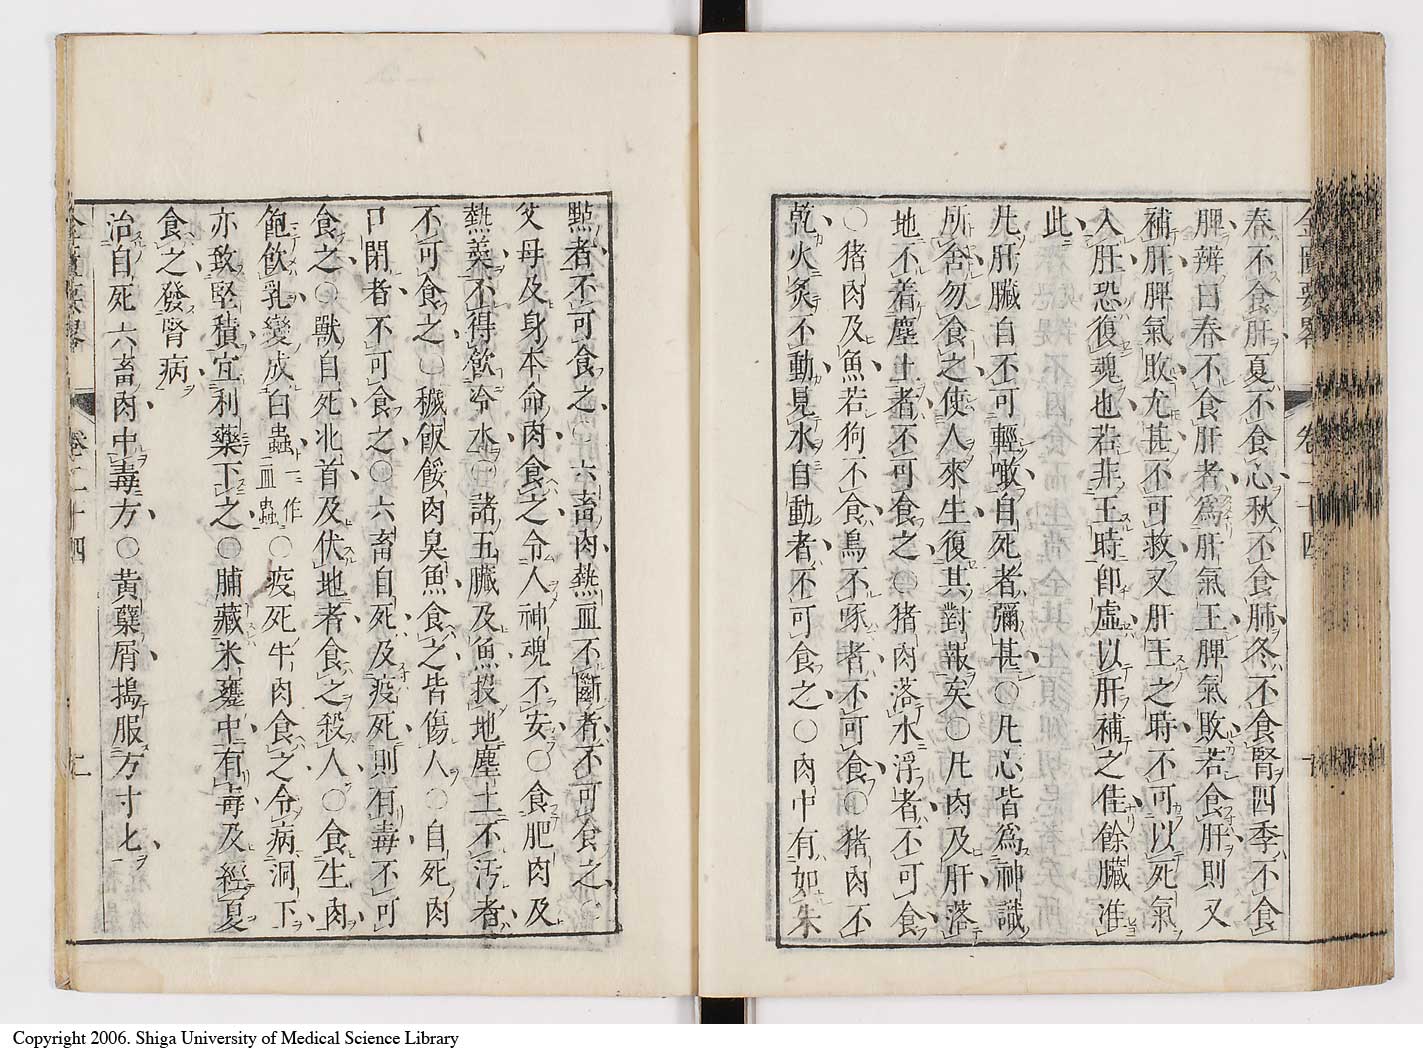 金匱要略 卷二十四
春不食肝夏不食心秋不食肺冬不食腎四季不食
脾辨曰春不食肝者爲肝氣王脾氣敗若食肝則又
補肝脾氣敗尤甚不可救又肝王之時不可以死氣
入肝恐復魂也若非王時卽虛以肝補之佳餘臟准
此
凡肝臟自不可輕噉自死者彌甚○凡心皆爲神識
所舍勿食之使人來生復其對報矣○凡肉及肝落
地不着塵土者不可食之○猪肉落水浮者不可食
○猪肉及魚若狗不食鳥不啄者不可食○猪肉不
乾火炙不動見水自動者不可食之○肉中有如朱
點者不可食之 六畜肉熱血不斷者不可食之
父母及身本命肉食之令人神魂不安○食肥肉及
熱羹不得飲冷水○諸五臟及魚投地塵土不汚者
不可食之○穢飯餒肉臭魚食之皆傷人○自死肉
口閉者不可食之○六畜自死及疫死則有毒不可
食之○獸自死北首及伏地者食之殺人○食生肉
飽飲乳變成白蟲一作血蟲○疫死牛肉食之令病洞下
亦致堅積宜利藥下之○脯藏米甕中有毒及經夏
食之發腎病
治自死六畜肉中毒方○黃蘗屑搗服方寸七
卷二十四
Copyright 2006. Shiga University of Medical Science Library